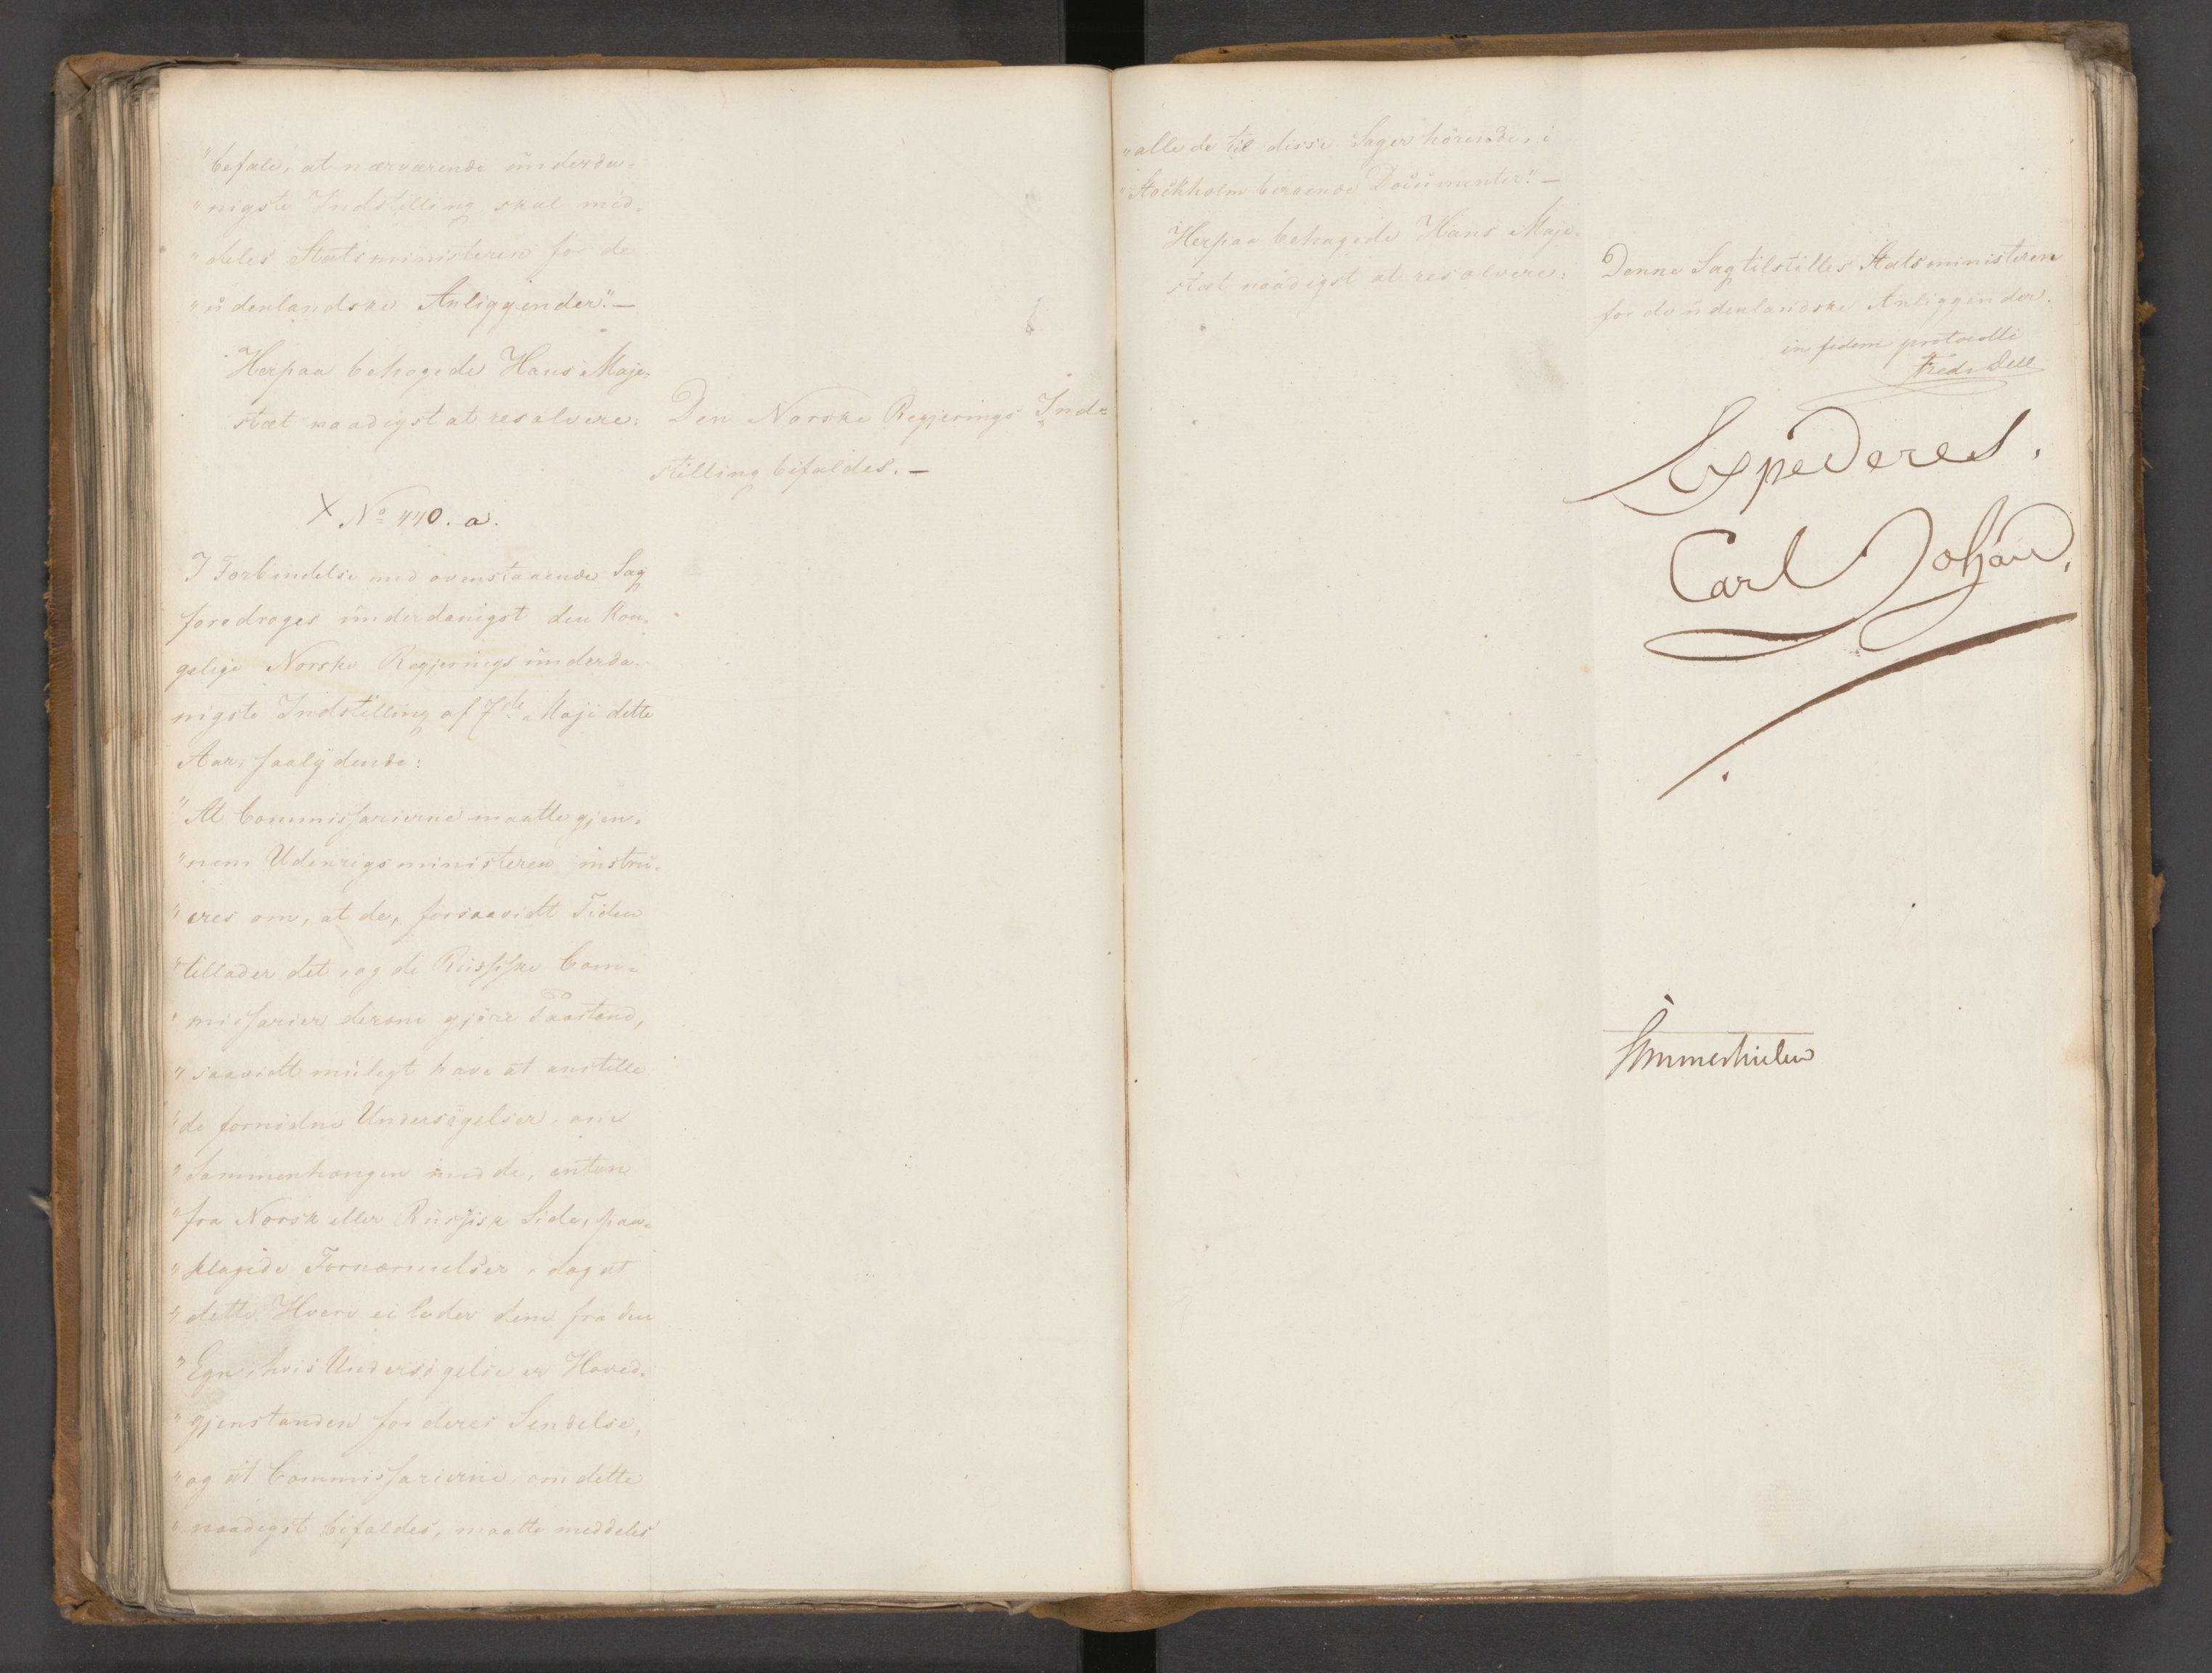 "befale, at nærværende underda=
"nigste Indstilling skal med=
"deles Statsministeren for de
"udenlandske Anliggender." —
Herpaa behagede Hans Maje=
stæt naadigst at resolvere:
Den Norske Regjerings Ind=
stilling bifaldes. —
X No 440. a.
I Forbindelse med ovenstaaende Sag
foredroges underdanigst den Kon=
gelige Norske Regjerings underda=
nigste Indstilling af 7de Maji dette
Aar, saalydende:
"At Commissarierne maatte gjen=
"nem Udenrigsministeren instru=
"eres om, at de, forsaavidt Tiden
"tillader det, og de Russiske Com=
"missarier derom gjöre Paastand,
"saavidt muligt have at anstille
"de fornödne Undersögelser om
"Sammenhængen med de, enten
"fra Norsk eller Russisk Side, paa=
"klagede Fornærmelser, dog at
"dette Hverv ei leder dem fra den
"Egn, hvis Undersögelse er Hoved=
"gjenstanden for deres Sendelse,
"og at Commissarierne, om dette
"naadigst bifaldes, maatte meddeles
"alle de til disse Sager hörende, i
"Stockholm beroende Documenter." —
Herpaa behagede Hans Maje=
stæt naadigst at resolvere:
Denne Sag tilstilles Statsministeren
for de udenlandske Anliggender.
in fidem protocolli
Fred. Due
Expederes.
Carl Johan,
Sommerhielm